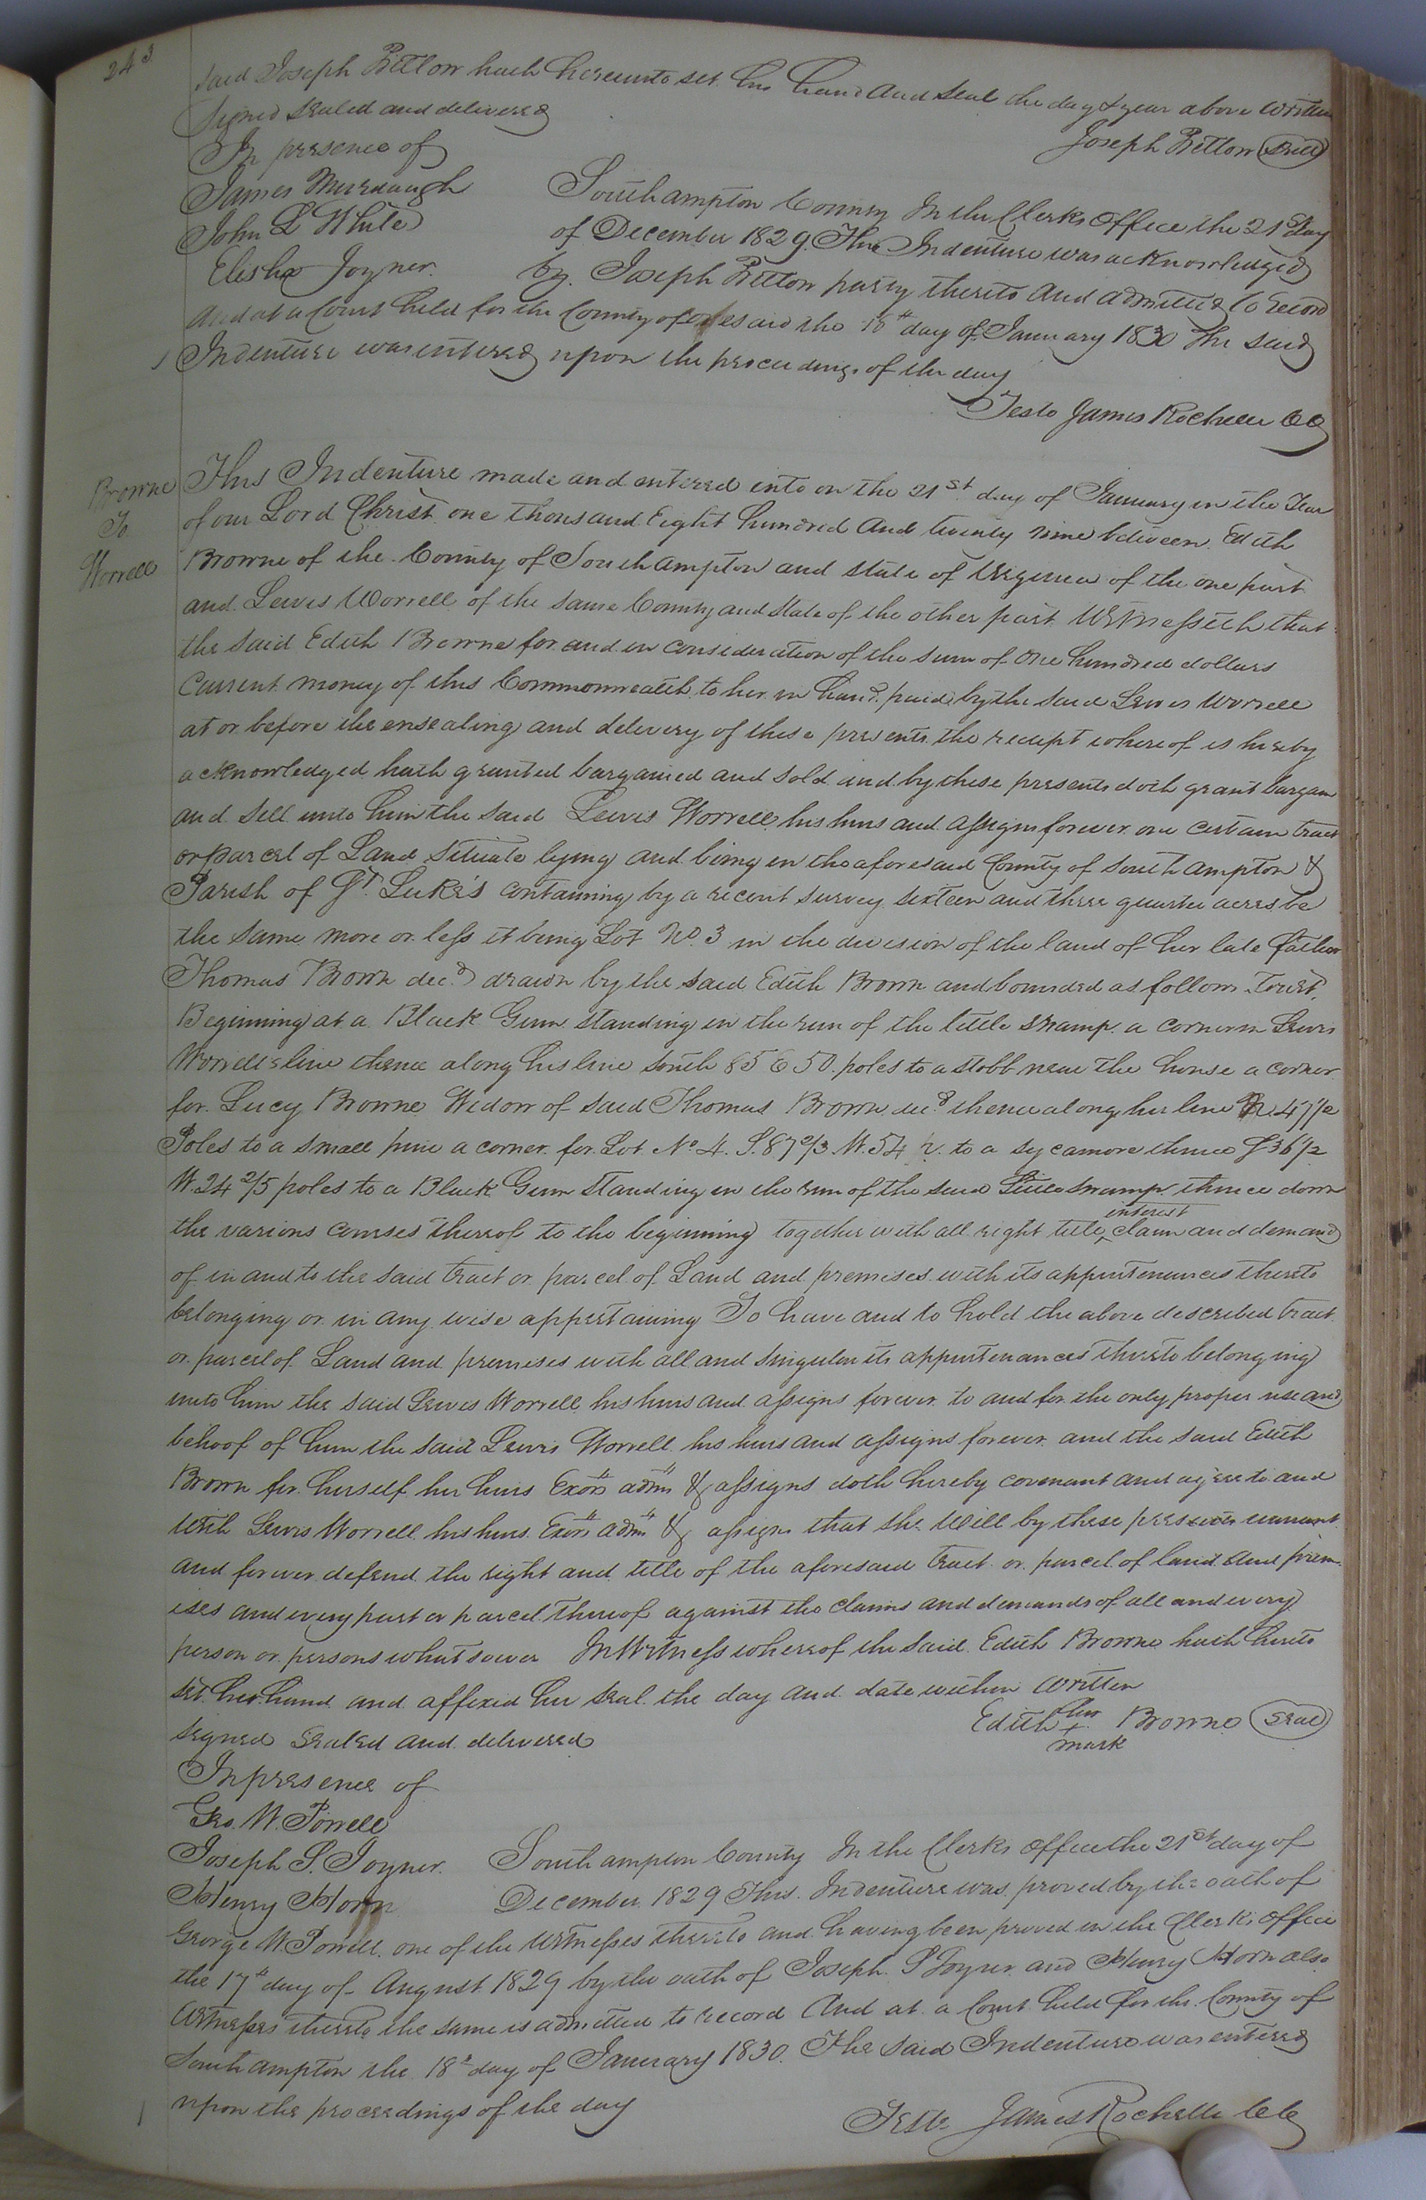 243
said Joseph Bittlow hath hereunto set his hand and seal the day & year above written
Signed sealed and delivered
In presence of
Joseph Bittlow Seal
James Murdaugh
John L White
Elisha Joyner.
Southampton County In the Clerks Office the 21st day
of December 1829. This Indenture was acknowledged
by Joseph Bittlow party thereto and admitted to record
And at a Court held for the County aforesaid the 18th day of January 1830 The said
Indenture was entered upon the proceedings of the day
Teste James Rochelle CC
Browne
To
Worrell
This Indenture made and entered into on the 21st day of January in the Year
of our Lord Christ one thousand Eight hundred and twenty nine between Edith
Browne of the County of Southampton and state of Virginia of the one part
and Lewis Worrell of the same County and State of the other part Witnesseth that
the said Edith Browne for and in consideration of the sum of One hundred dollars
Current money of this Commonwealth to her in hand paid by the said Lewis Worrell
at or before the ensealing and delivery of these presents the receipt whereof is hereby
acknowledged hath granted bargained and sold and by these presents doth grant bargain
and sell unto him the said Lewis Worrell his heirs and assigns forever one certain tract
or parcel of Land situate lying and being in the aforesaid County of Southampton &
Parish of St. Luke's containing by a recent survey sixteen and three quarter acres be
the same more or less it being Lot No. 3 in the division of the land of her late father
Thomas Brown decd drawn by the said Edith Brown and bounded as follows Towit,
Beginning at a Black Gum standing in the run of the little swamp a corner in Lewis
Worrell's line thence along his line South 85 E 50 poles to a stobb near the house a corner
for Lucy Browne Widow of said Thomas Brown decd thence along her line 47 1/2
Poles to a small pine a corner for Lot No. 4. S. 87 2/3 W. 54 p. to a sycamore thence S 36 1/2
W. 24 2/5 poles to a Black Gum standing in the run of the said Little swamp thence down
the various courses thereof to the beginning together with all right title, interest claim and demand
of in and to the said tract or parcel of Land and premises with its appurtenances thereto
belonging or in any wise appertaining To have and to hold the above described tract
or parcel of Land and premises with all and singular its appurtenances thereto belonging
unto him the said Lewis Worrell his heirs and assigns forever to and for the only proper use and
behoof of him the said Lewis Worrell his heirs and assigns forever and the said Edith
Brown for herself her heirs Exors adms & assigns doth hereby covenant and agree to and
with Lewis Worrell his heirs Exors adms & assigns that she will by these presents warrant
and forever defend the right and title of the aforesaid tract or parcel of land and prem-
ises and every part or parcel thereof against the claims and demands of all and every
person or persons whatsoever In Witness whereof the said Edith Browne hath hereto
set her hand and affixed her seal the day and date within written
Edith her + mark Browne Seal
signed sealed and delivered
In presence of
Geo. W. Powell
Joseph S. Joyner.
Henry Horn
Southampton County In the Clerks Office the 21st day of
December 1829 This Indenture was proved by the oath of
George W. Powell one of the Witnesses thereto and having been proved in the Clerks Office
the 17th day of August 1829 by the oath of Joseph S Joyner and Henry Horn also
Witnesses thereto the same is admitted to record And at a Court held for the County of
Southampton the 18th day of January 1830. The said Indenture was entered
upon the proceedings of the day
Teste James Rochelle CC